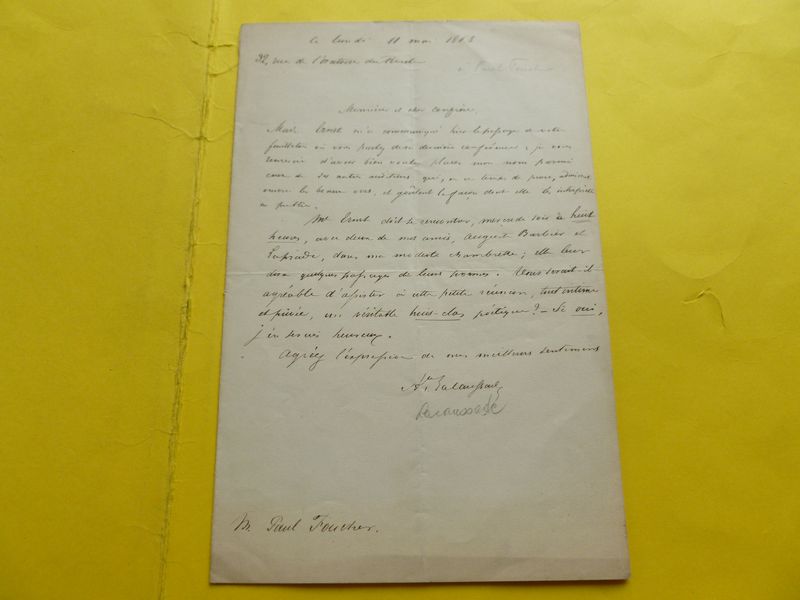 ce lundi 11 mai 1868
32, rue de l'oratoire du Roule
à Paul Foucher
Monsieur et cher confrère,
Made Ernst m'a communiqué hier le passage de votre
feuilleton où vous parlez de sa dernière conférence ; je vous
remercie d'avoir bien voulu placer mon nom parmi
ceux de ses autres auditeurs qui, en ce temps de prose, admirent
encore les beaux vers, et goûtent la façon dont elle les interprète
en public.
Me Ernst doit se rencontrer, mercredi soir à huit
heures, avec deux de mes amis, Auguste Barbier et
Laprade, dans ma modeste chambrette ; elle leur
dira quelques passages de leurs poèmes. Vous serait-il
agréable d'assister à cette petite réunion, tout intime
et privée, un véritable huis-clos poétique ? — Si oui,
j'en serais heureux.
Agréez l'expression de mes meilleurs sentiments
Ate Lacaussade
Lacaussade
M. Paul Foucher.